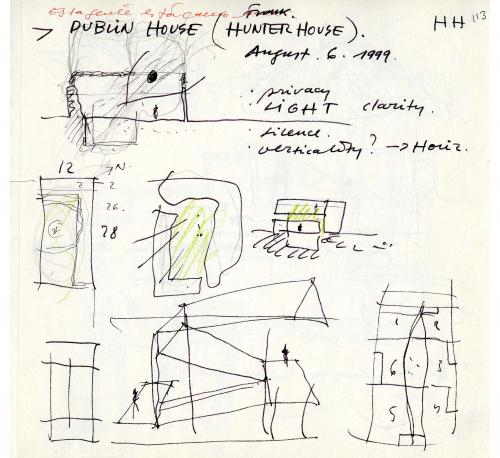 Esta gente está
> DUBLIN HOUSE (HUNTER HOUSE).
HH 113
August. 6. 1999.
· privacy
· LIGHT clarity.
· silence.
· verticality? → Horiz.
12 N.
2 2
26.
28
6 3
5